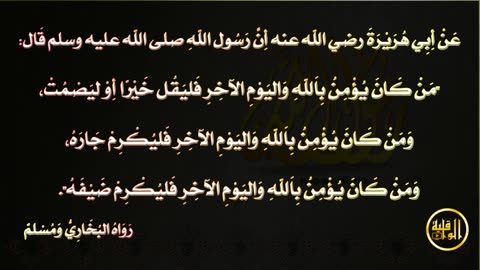 عَنْ أَبِي هُرَيْرَةَ رضي الله عنه أنَّ رَسُول اللهِ صلى الله عليه وسلم قَال:
"مَنْ كَانَ يُؤْمِنُ بِاَللَّهِ وَاليَوْمِ الآخِرِ فَليَقُل خَيْرًا أوْ ليَصْمُتْ،
وَمَنْ كَانَ يُؤْمِنُ بِاَللَّهِ وَاليَوْمِ الآخِرِ فَليُكْرِمْ جَارَهُ،
وَمَنْ كَانَ يُؤْمِنُ بِاَللَّهِ وَاليَوْمِ الآخِرِ فَليُكْرِمْ ضَيْفَهُ".
رَوَاهُ البُخَارِيُّ وَمُسْلمٌ